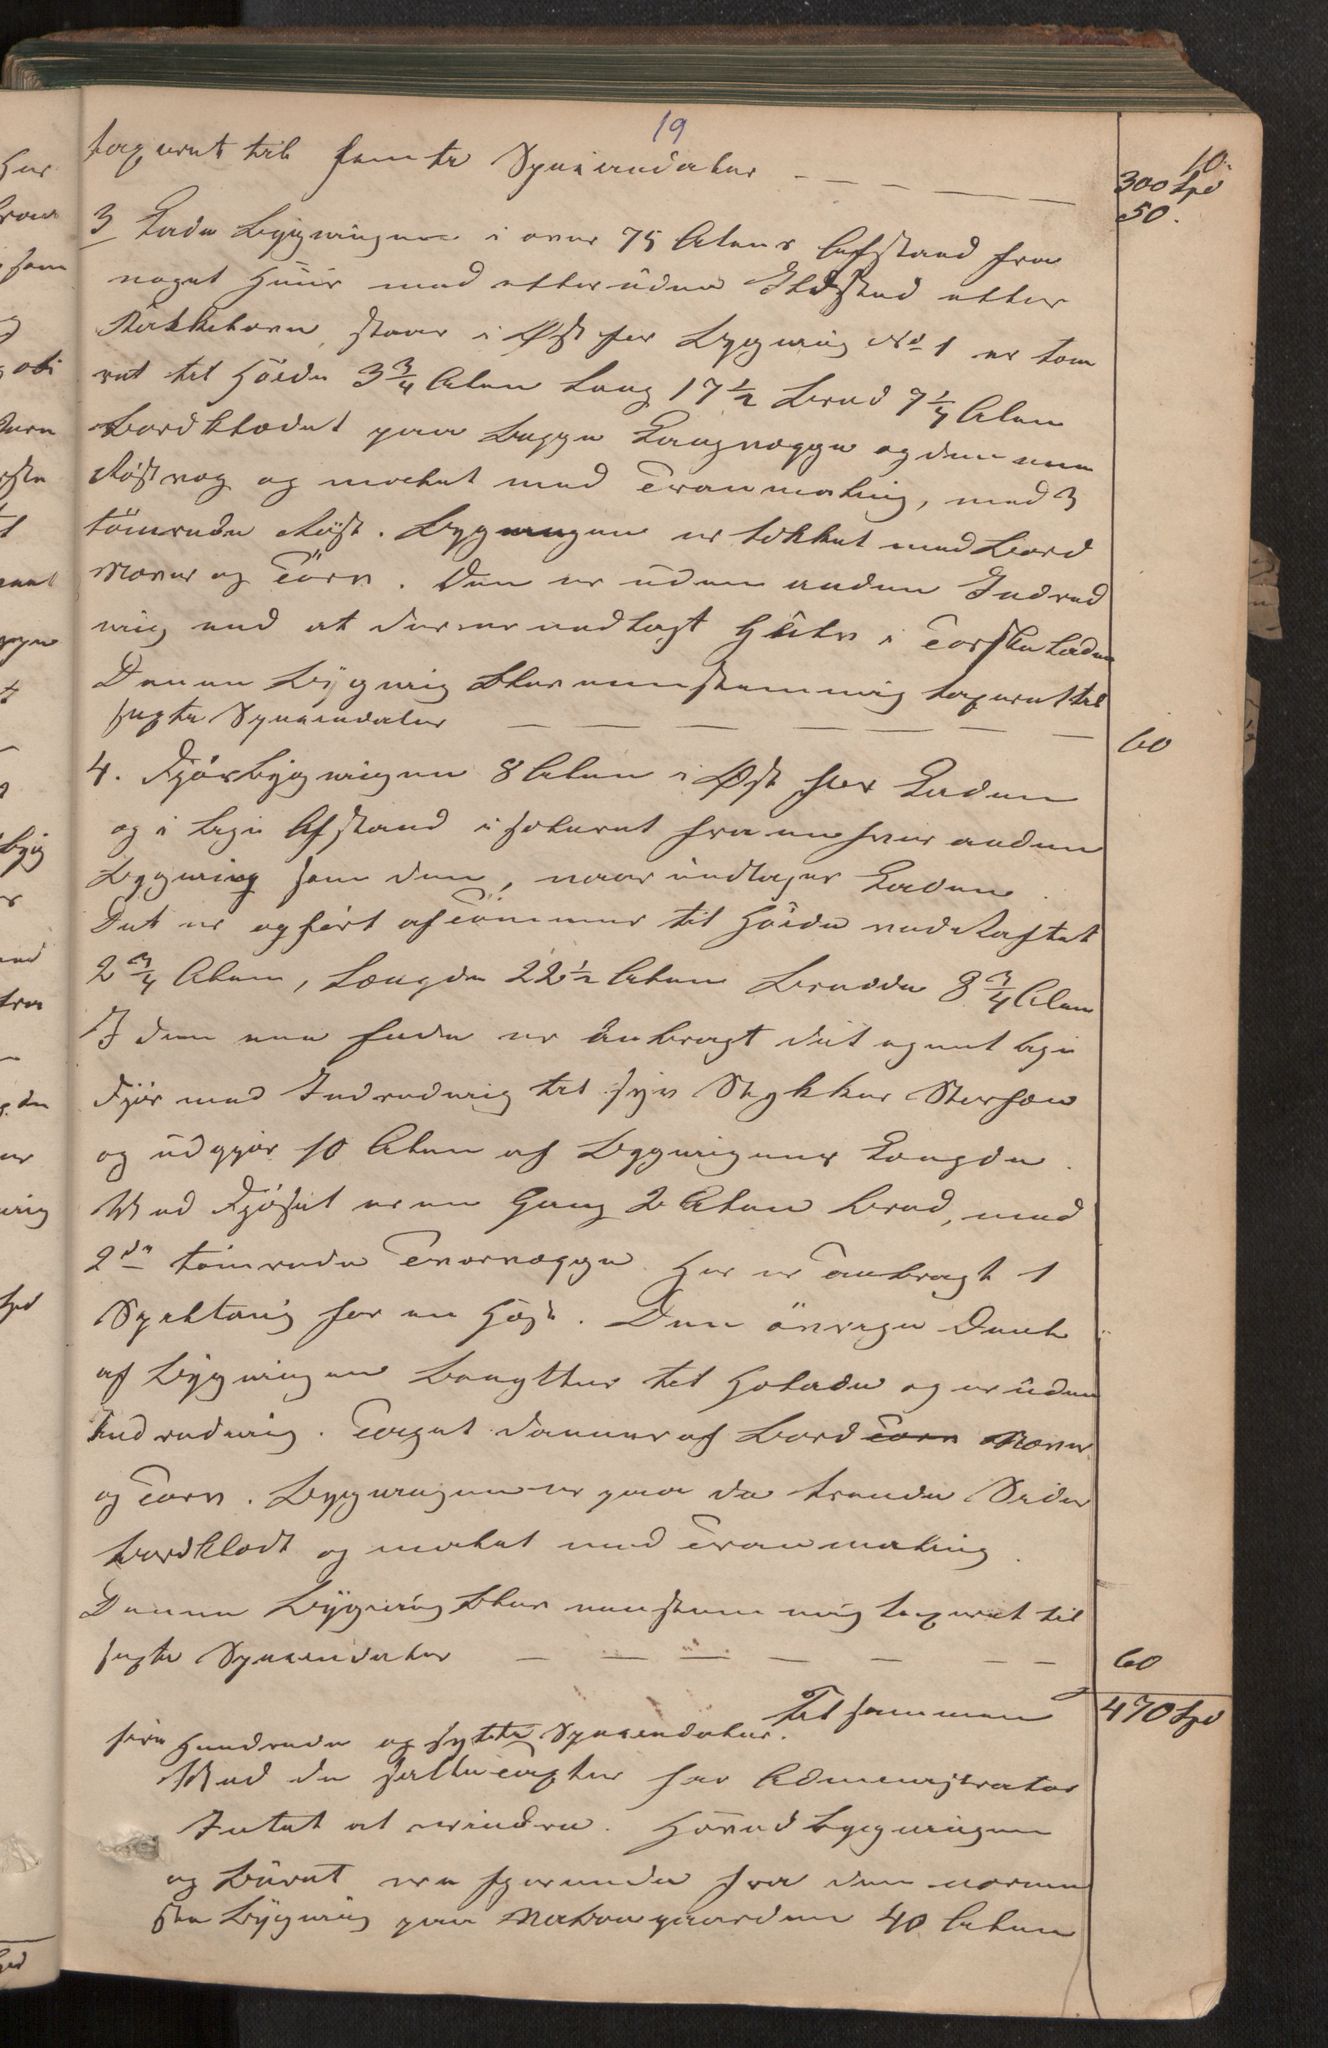 19
10.
taxeret til femti Speciedaler — — — — 300 Spd
50.
3 Ladebygningen i over 75 Alens Afstand fra
noget Huus med eller uden Ildsted eller
Kakkelovn, staar i Øst for Bygning No 1 er tøm
ret til Høide 3 3/4 Alen Lang 17 1/2 Bred 7 1/4 Alen
Bordklædet paa begge Langvægge og den ene
Røstvæg og malet med Tranmaling, med 3
tømrede Røst. Bygningen er tekket med Bord
Næver og Törv. Den er uden anden Indred
ning end at der er nedlagt Gulv i Tærskeladen
Denne Bygning blev eenstemmig taxeret til
sexti Speciedaler — — — — — — 60
4. Fjösbygningen 8 Alen i Øst for Laden
og i lige Afstand isoleret fra enhver anden
Bygning som den, naar undtages Laden.
Det er opført af Tömmer til Höide ved Raftet
2 3/4 Alen, Længde 22 1/2 Alen Bredde 8 3/4 Alen
I den ene Ende er anbragt det egentlige
Fjös med Indredning til syv Stykker Storfæe
og udgjør 10 Alen af Bygningens Længde.
Ved Fjöset er en Gang 2 Alen bred, med
2de tömrede Tværvægge. Her er anbragt 1
Spiltoug for en Hest. Den övrige Deel
af Bygningen benyttes til Hölade og er uden
Indredning. Taget dannes af Bord Torv Næver
og Torv. Bygningen er paa de trende Sider
bordklædt og malet med Tranmaling.
Denne Bygning blev eenstemmig taxeret til
sexti Speciedaler — — — — — — 60
Tilsammen 470 Spd
fire Hundrede og sytti Speciedaler.
Ved de satte Taxter har Administrator
Intet at erindre. Hovedbygningen
og Buret ere fjernede fra den nærme
ste Bygning paa Nabogaarden 40 Alen